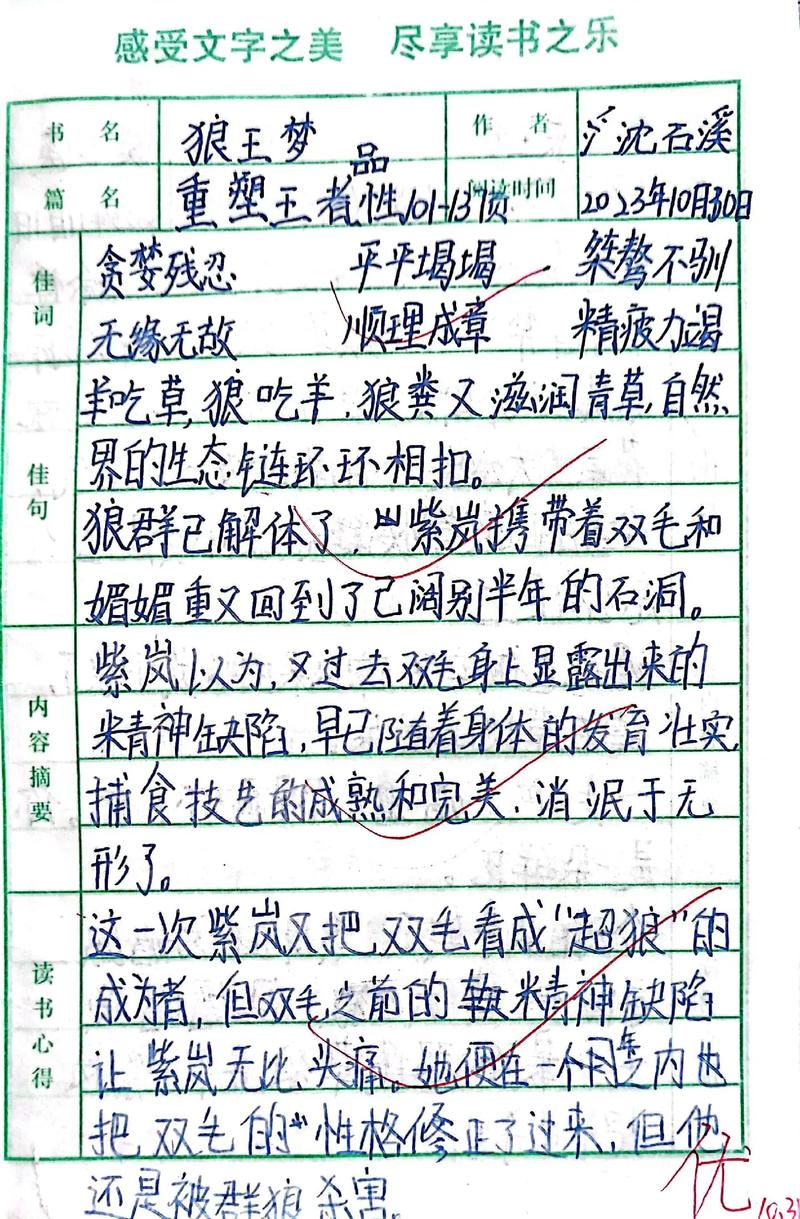 感受文字之美 尽享读书之乐
书名 狼王梦 作者 沈石溪
篇名 重塑王者品性101-137页 阅读时间 2023年10月30日
佳词 贪婪残忍 平平塌塌 桀骜不驯
无缘无故 顺理成章 精疲力竭
佳句 羊吃草,狼吃羊,狼粪又滋润青草,自然
界的生态链环环相扣。
狼群已解体了,紫岚携带着双毛和
媚媚重又回到了已阔别半年的石洞。
内容摘要 紫岚以为,又过去双毛身上显露出来的
精神缺陷,早已随着身体的发育壮实,
捕食技艺的成熟和完美,消泯于无
形了。
读书心得 这一次紫岚又把双毛看成“超狼”的
成为者,但双毛之前的精神缺陷
让紫岚无比头痛。她便在一个年之内也
把双毛的性格修正了过来,但他
还是被群狼杀害。
优
10.31